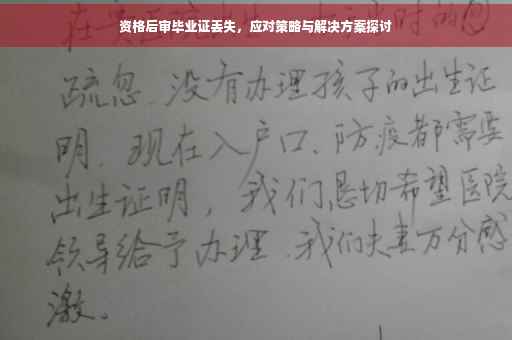 资格后审毕业证丢失，应对策略与解决方案探讨
时的
疏忽、没有办理孩子的出生证
明、现在入户口、防疫都需要
出生证明，我们恳切希望医院
领导给予办理、我们夫妻万分感
激。